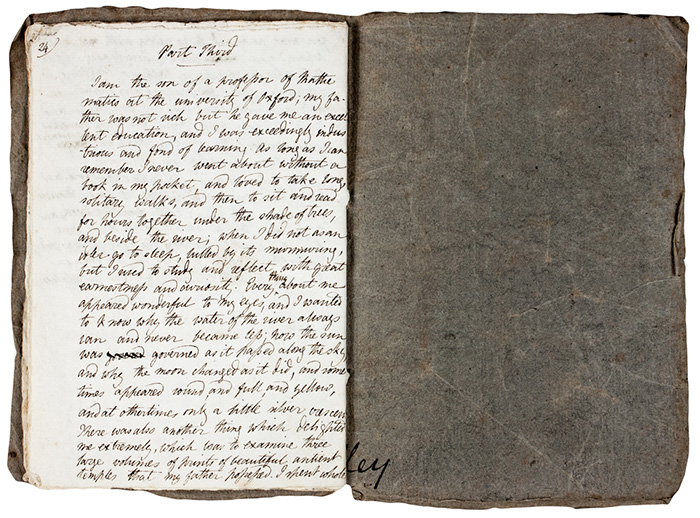 24)
Part Third
I am the son of a professor of Mathe
matics at the university of Oxford; my fa
ther was not rich but he gave me an excel
lent education, and I was exceedingly indus
trious and fond of learning. As long as I can
remember I never went about without a
book in my pocket, and loved to take long,
solitary walks, and then to sit and read
for hours together under the shade of trees,
and beside the river; when I did not as an
idler go to sleep, lulled by its murmuring,
but I used to study and reflect with great
earnestness and curiosity. Every thing about me
appeared wonderful to my eyes, and I wanted
to know why the water of the river always
ran and never became less; how the sun
was governed as it passed along the sky,
and why the moon changed as it did, and some
times appeared round and full, and yellow,
and at other times only a little silver crescen
There was also another thing which delighted
me extremely, which was to examine three
large volumes of prints of beautiful antient
temples that my father possessed. I spent whole
ley